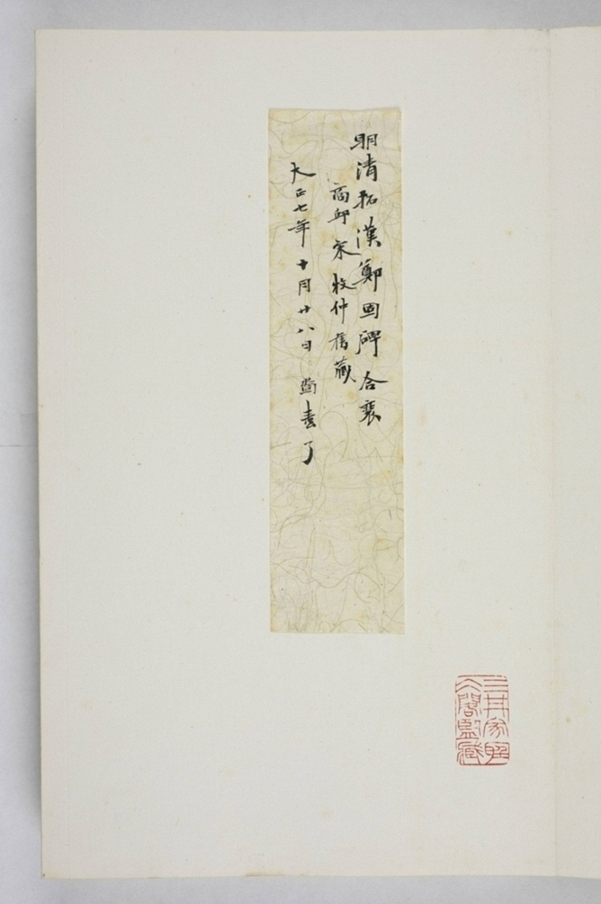 明清拓漢鄭固碑合裝
商邱宋牧仲舊藏
大正七年十月廿八日 書了
三井家聽
冰閣監藏